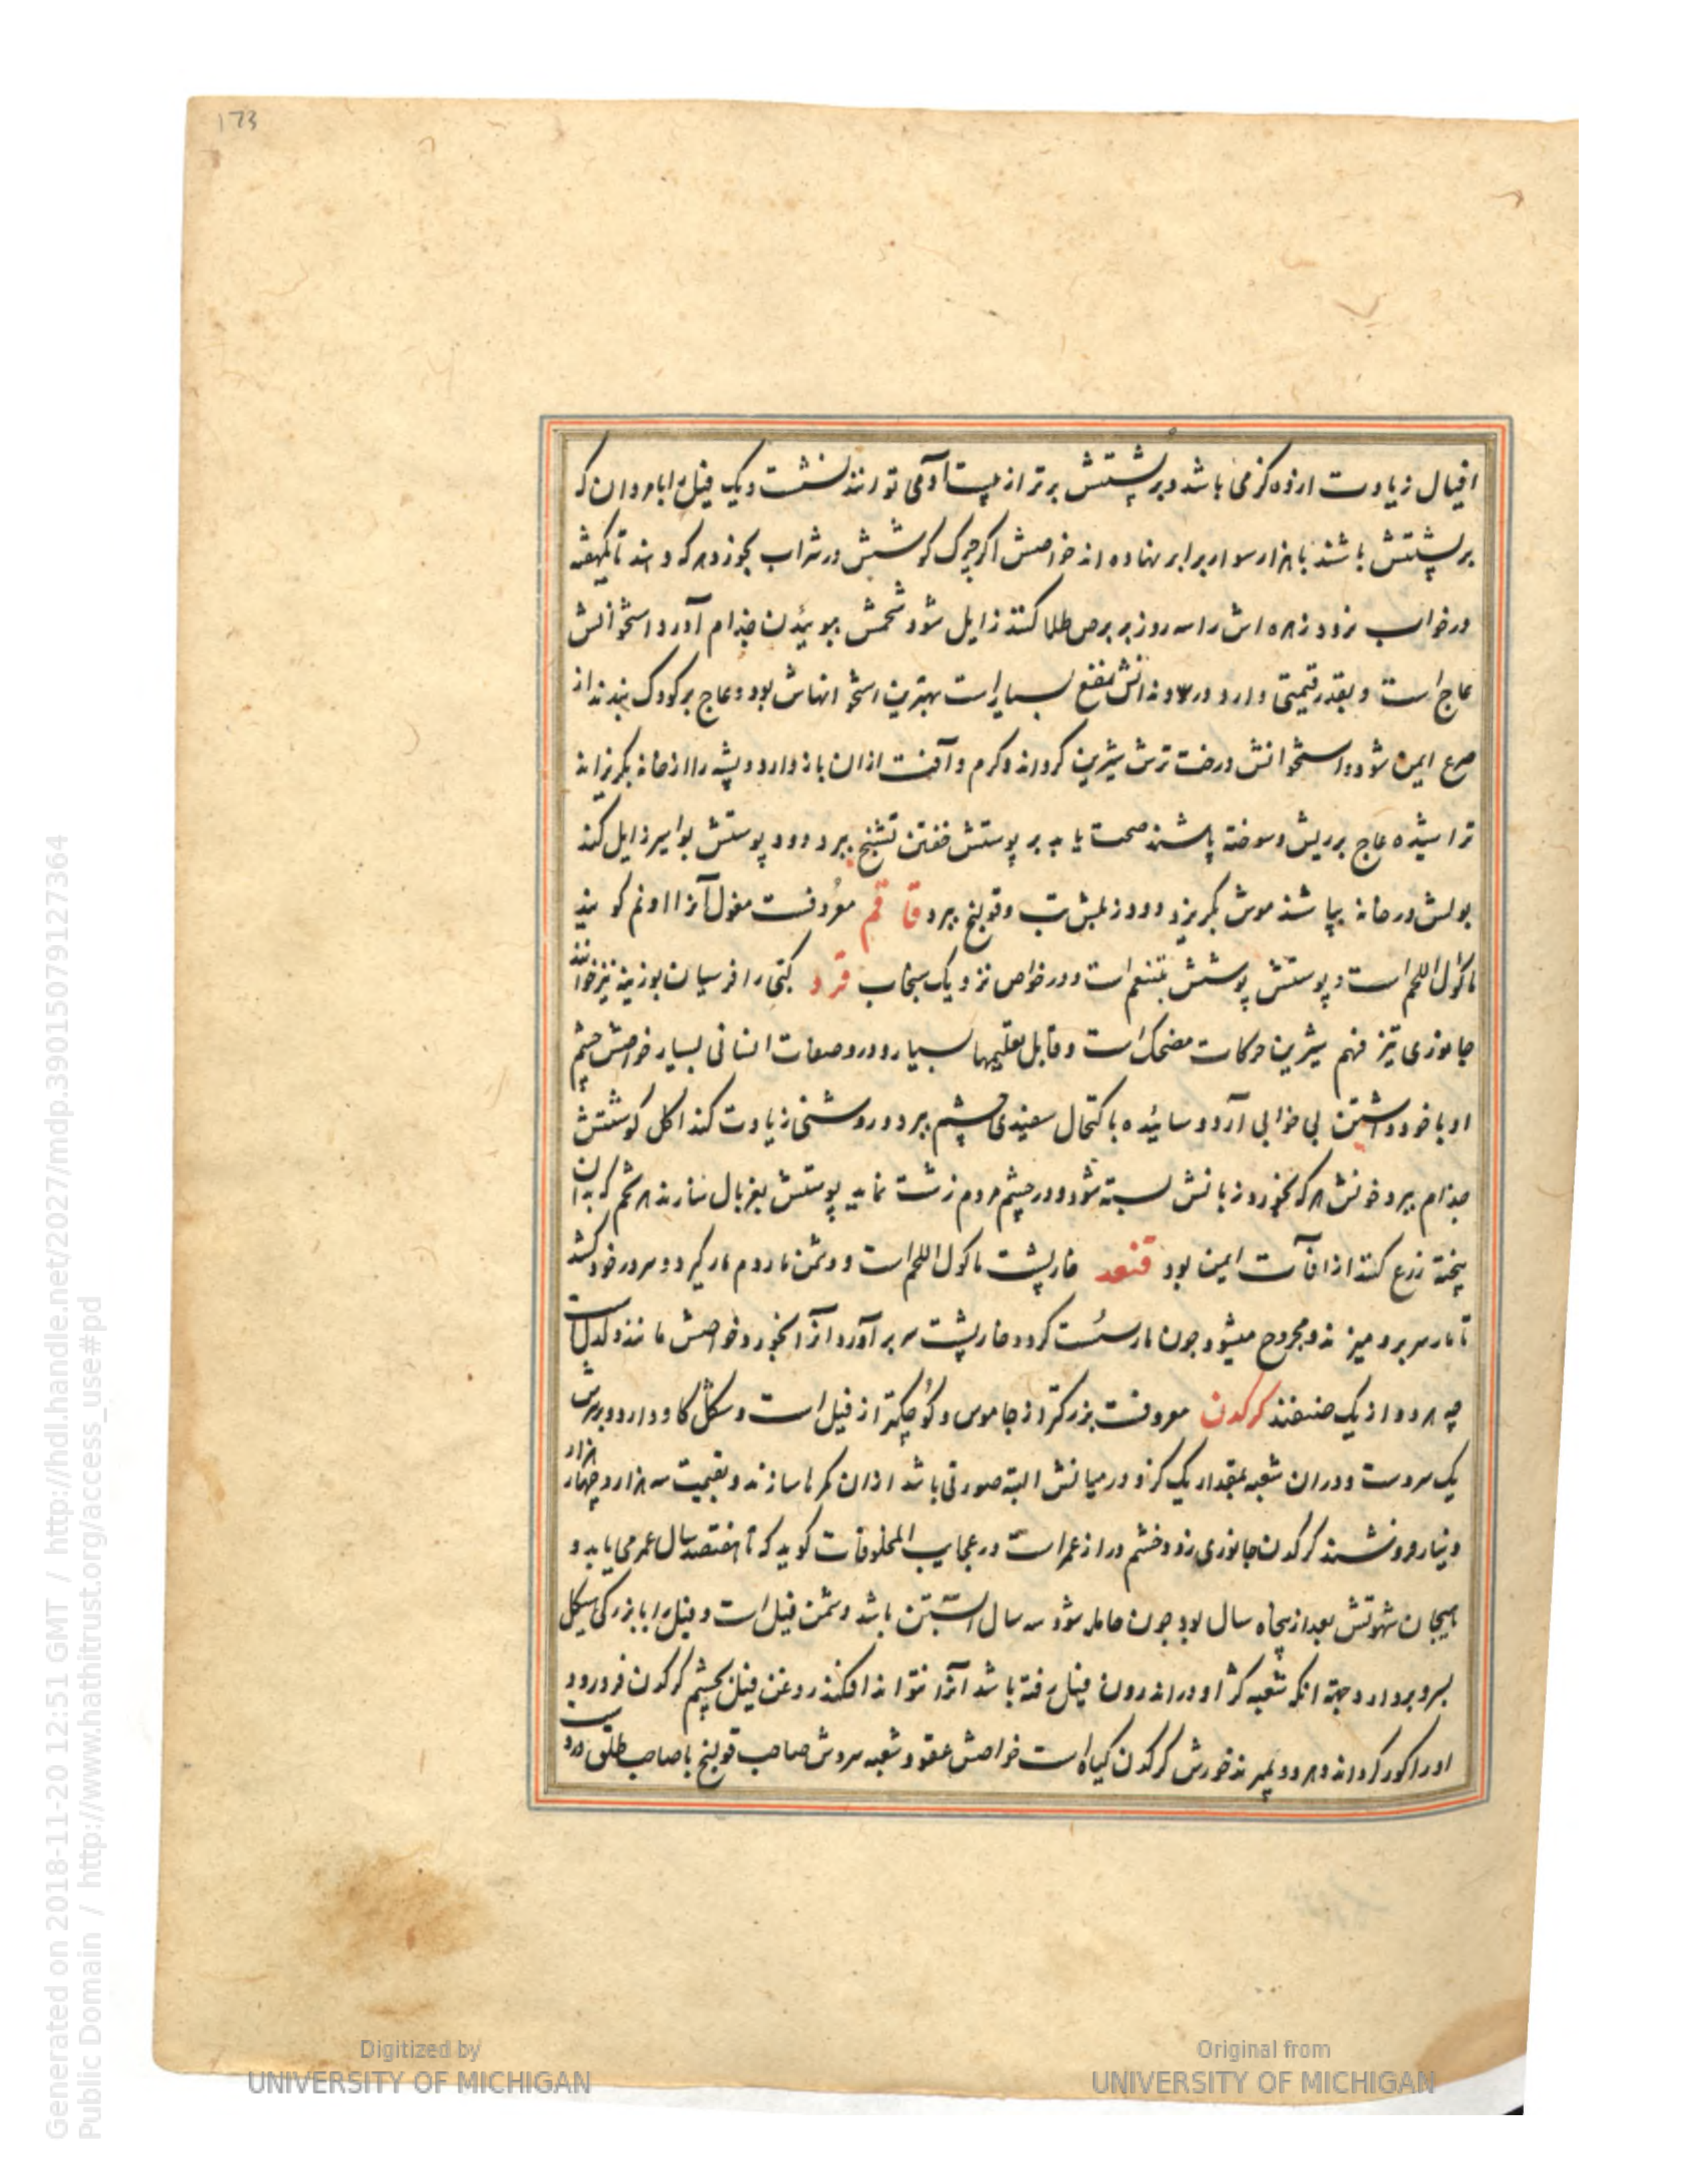 173
افیال زیادت از ده کز می باشد و بر پشتش برتر از بیست آدمی توانند نشست و یک فیل را با مردان که
بر پشتش باشند با هزار سوار برابر نهاده اند خواصش اکر چرک کوشش در شراب بخورد هر که دهند تا یکهفته
در خواب نرود زهره اش را سه روز بر برص طلا کنند زایل شود شحمش ببوئیدن جذام آورد استخوانش
عاج است و بقدر قیمتی دارد در دندانش نفع بسیار است بهترین استخوانهاش بود و عاج بر کودک بندند از
صرع ایمن شود و استخوانش درخت ترش شیرین کرداند و کرم و آفت از ان باز دارد و پشه را از خانه بکریزاند
تراشیده عاج بر ریش و سوخته پاشند صحت یابد بر پوستش خفتن تشنج ببرد و دود پوستش بواسیر زایل کند
بولش در خانه بپاشند موش بکریزد و دود زبلش تب و قولنج ببرد قاقم معروفست مغول آنرا اونم کویند
ماکول اللحم است و پوستش پوشش متنعم است و در خواص نزدیک سنجاب قرد کبّی را فرسیان بوزینه نیز خوانند
جانوری تیز فهم شیرین حرکات مضحک است و قابل تعلیمها بسیار و درو صفات انسانی بسیار خواصش چشم
او با خود داشتن بی خوابی آرد و سائیده باکتحال سفیدی چشم ببرد و روشنی زیادت کند اکل کوشتش
جذام ببرد خونش هر که بخورد زبانش بسته شود و در چشم مردم زشت نماید پوستش بغربال سازند هر تخم که بدان
پخته زرع کنند از افات ایمن بود قنفد خارپشت ماکول اللحم است و دشمن مار دم مار کیرد و سر در خود کشد
تا مار سر برو میزند و مجروح میشود چون مار سست کردد خارپشت سر بر آورد آنرا بخورد خواصش مانند دلدلست
چه هر دو از یک صنفند کرکدن معروفست بزرکتر از جاموس و کوچکتر از فیل است و شکل کاو دارد و بر سرش
یک سروست و در ان شعبه بمقدار یک کز و در میانش البته صورتی باشد از ان کمرها سازند و بقیمت سه هزار و چهار هزار
دینار فروشند کرکدن جانوری زود خشم دراز عمر است در عجایب المخلوقات کوید که تا هفتصد سال عمر می یابد و
هیجان شهوتش بعد از پنجاه سال بود چون حامله شود سه سال آبستن باشد دشمن فیل است و فیل را با بزرکی هیکل
بسرو بردارد و جهة انکه شعبه کژ او در اندرون فیل رفته باشد آنرا نتواند افکند روغن فیل بچشم کرکدن فرو رود
او را کور کرداند و هر دو بمیرند خورش کرکدن کیاه است خواصش عقود شعبه سروش صاحب قولنج با صاحب طلق
Generated on 2018-11-20 12:51 GMT / http://hdl.handle.net/2027/mdp.39015079127364
Public Domain / http://www.hathitrust.org/access_use#pd
Digitized by
UNIVERSITY OF MICHIGAN
Original from
UNIVERSITY OF MICHIGAN